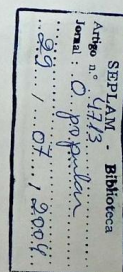 SEPLAM - Biblioteca
Artigo n.º 4713
Jornal: O popular
29 / 07 / 2004